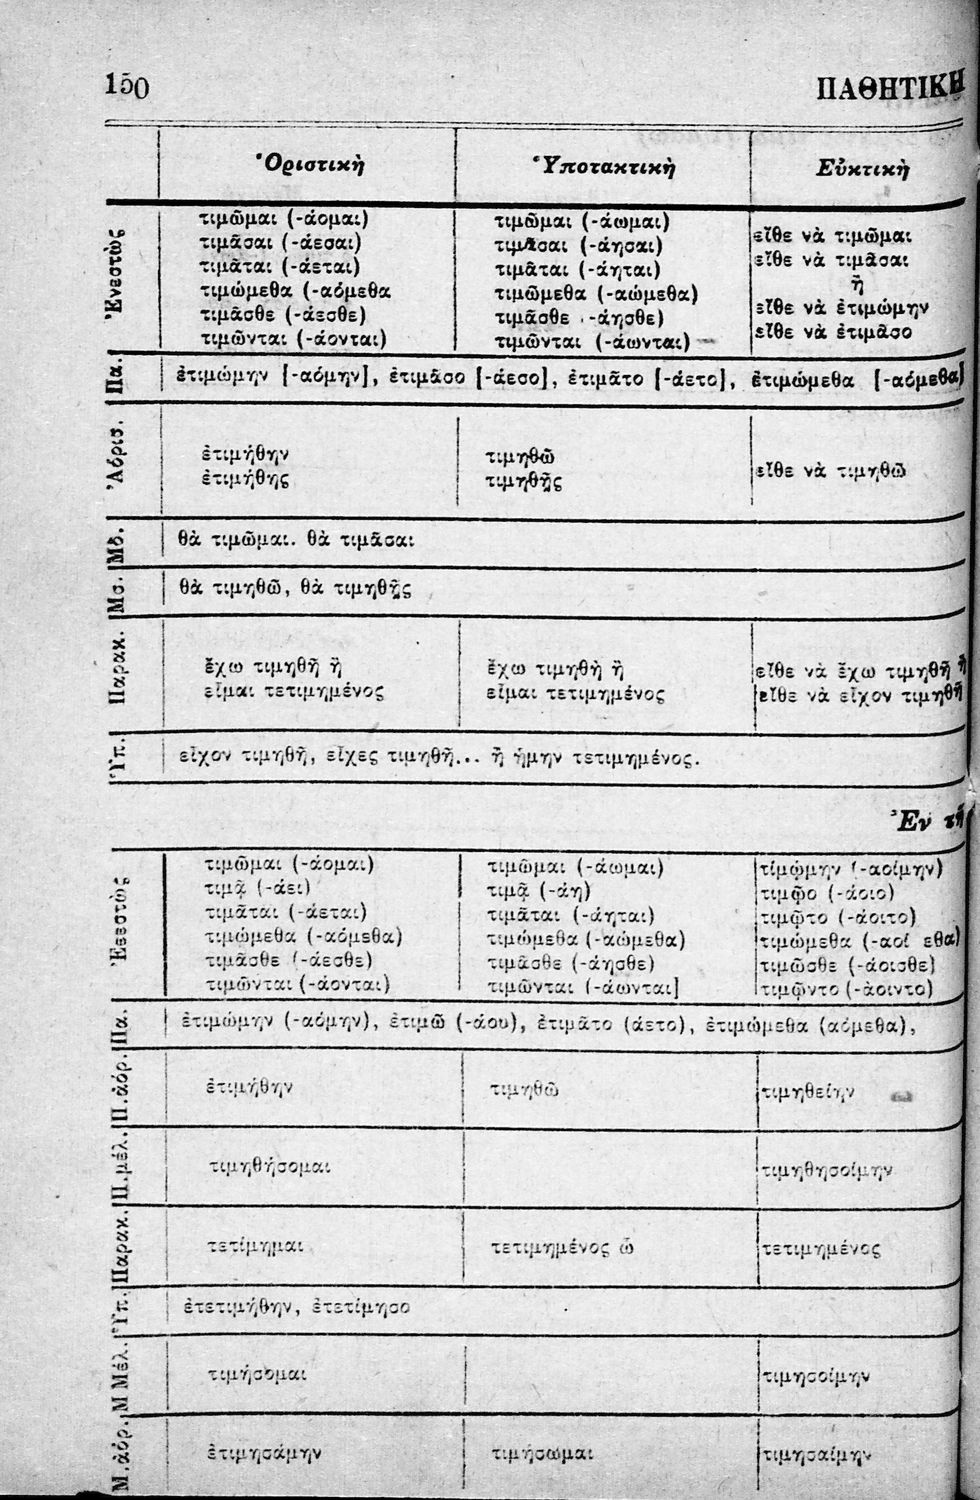 150 ΠΑΘΗΤΙΚΗ
Ὁριστικὴ Ὑποτακτικὴ Εὐκτικὴ
Ἐνεστὼς
τιμῶμαι (-άομαι) τιμῶμαι (-άωμαι)
εἴθε νὰ τιμῶμαι
τιμᾶσαι (-άεσαι) τιμᾶσαι (-άησαι)
εἴθε νὰ τιμᾶσαι
τιμᾶται (-άεται) τιμᾶται (-άηται)
ἢ
τιμώμεθα (-αόμεθα τιμῶμεθα (-αώμεθα)
εἴθε νὰ ἐτιμώμην
τιμᾶσθε (-άεσθε) τιμᾶσθε -άησθε)
εἴθε νὰ ἐτιμᾶσο
τιμῶνται (-άονται) τιμῶνται (-άωνται)
Πα. ἐτιμώμην [-αόμην], ἐτιμᾶσο [-άεσο], ἐτιμᾶτο [-άετο], ἐτιμώμεθα [-αόμεθα]
Ἀόρισ.
ἐτιμήθην τιμηθῶ
εἴθε νὰ τιμηθῶ
ἐτιμήθης τιμηθῇς
Μδ. θὰ τιμῶμαι. θὰ τιμᾶσαι
Μσ. θὰ τιμηθῶ, θὰ τιμηθῇς
Παρακ.
ἔχω τιμηθῆ ἢ ἔχω τιμηθῆ ἢ εἴθε νὰ ἔχω τιμηθῆ ἢ
εἶμαι τετιμημένος εἶμαι τετιμημένος εἴθε νὰ εἶχον τιμηθῆ
Ὑπ. εἶχον τιμηθῆ, εἶχες τιμηθῆ... ἢ ἤμην τετιμημένος.
Ἐν τῇ
Ἐεεστὼς
τιμῶμαι (-άομαι) τιμῶμαι (-άωμαι) τίμῴμην (-αοίμην)
τιμᾷ (-άει) τιμᾷ (-άη) τιμῷο (-άοιο)
τιμᾶται (-άεται) τιμᾶται (-άηται) τιμῷτο (-άοιτο)
τιμώμεθα (-αόμεθα) τιμώμεθα (-αώμεθα) τιμώμεθα (-αοί εθα)
τιμᾶσθε (-άεσθε) τιμᾶσθε (-άησθε) τιμῶσθε (-άοισθε)
τιμῶνται (-άονται) τιμῶνται (-άωνται] τιμῷντο (-άοιντο)
Πα. ἐτιμώμην (-αόμην), ἐτιμῶ (-άου), ἐτιμᾶτο (άετο), ἐτιμώμεθα (αόμεθα),
Π.ἀόρ. ἐτιμήθην τιμηθῶ τιμηθείην
Π.μέλ. τιμηθήσομαι τιμηθησοίμην
Παρακ. τετίμημαι τετιμημένος ὦ τετιμημένος
Ὑπ. ἐτετιμήθην, ἐτετίμησο
Μ Μέλ. τιμήσομαι τιμησοίμην
Μ.ἀόρ. ἐτιμησάμην τιμήσωμαι τιμησαίμην